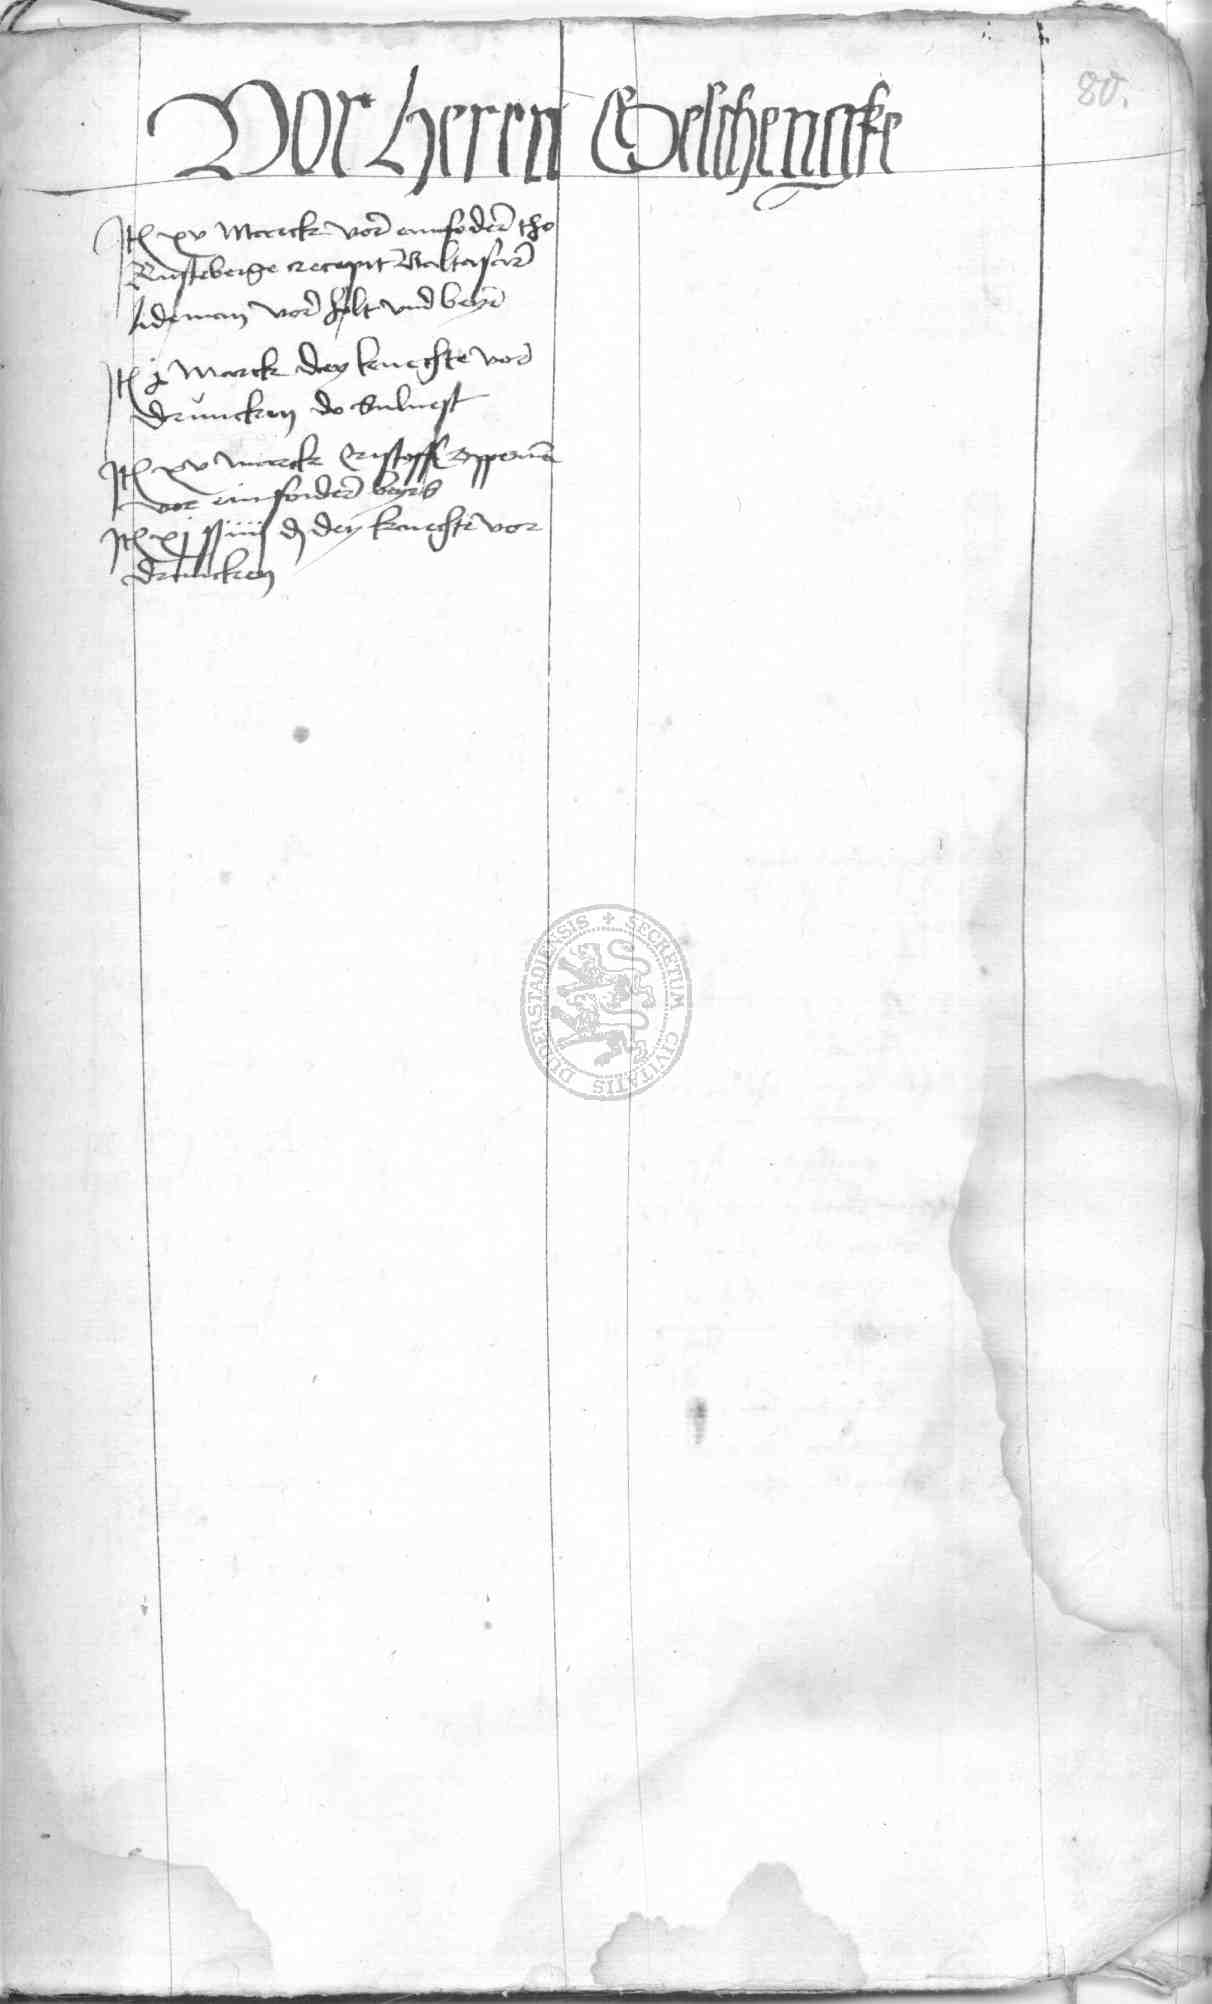 80.
Vor Herrn Geschencke
It xv Marck vor eim foder tho
Rusteberge recepit Baltasar
lideman vor holt vnd beyr
It j Marck dey knechte vor
druncken do suluest
It xv marck Cristoff
vor eim foider beyrs
It xj ß iiij d dey knechte vor
druncken
SECRETUM CIVITATIS DUDERSTADIENSIS